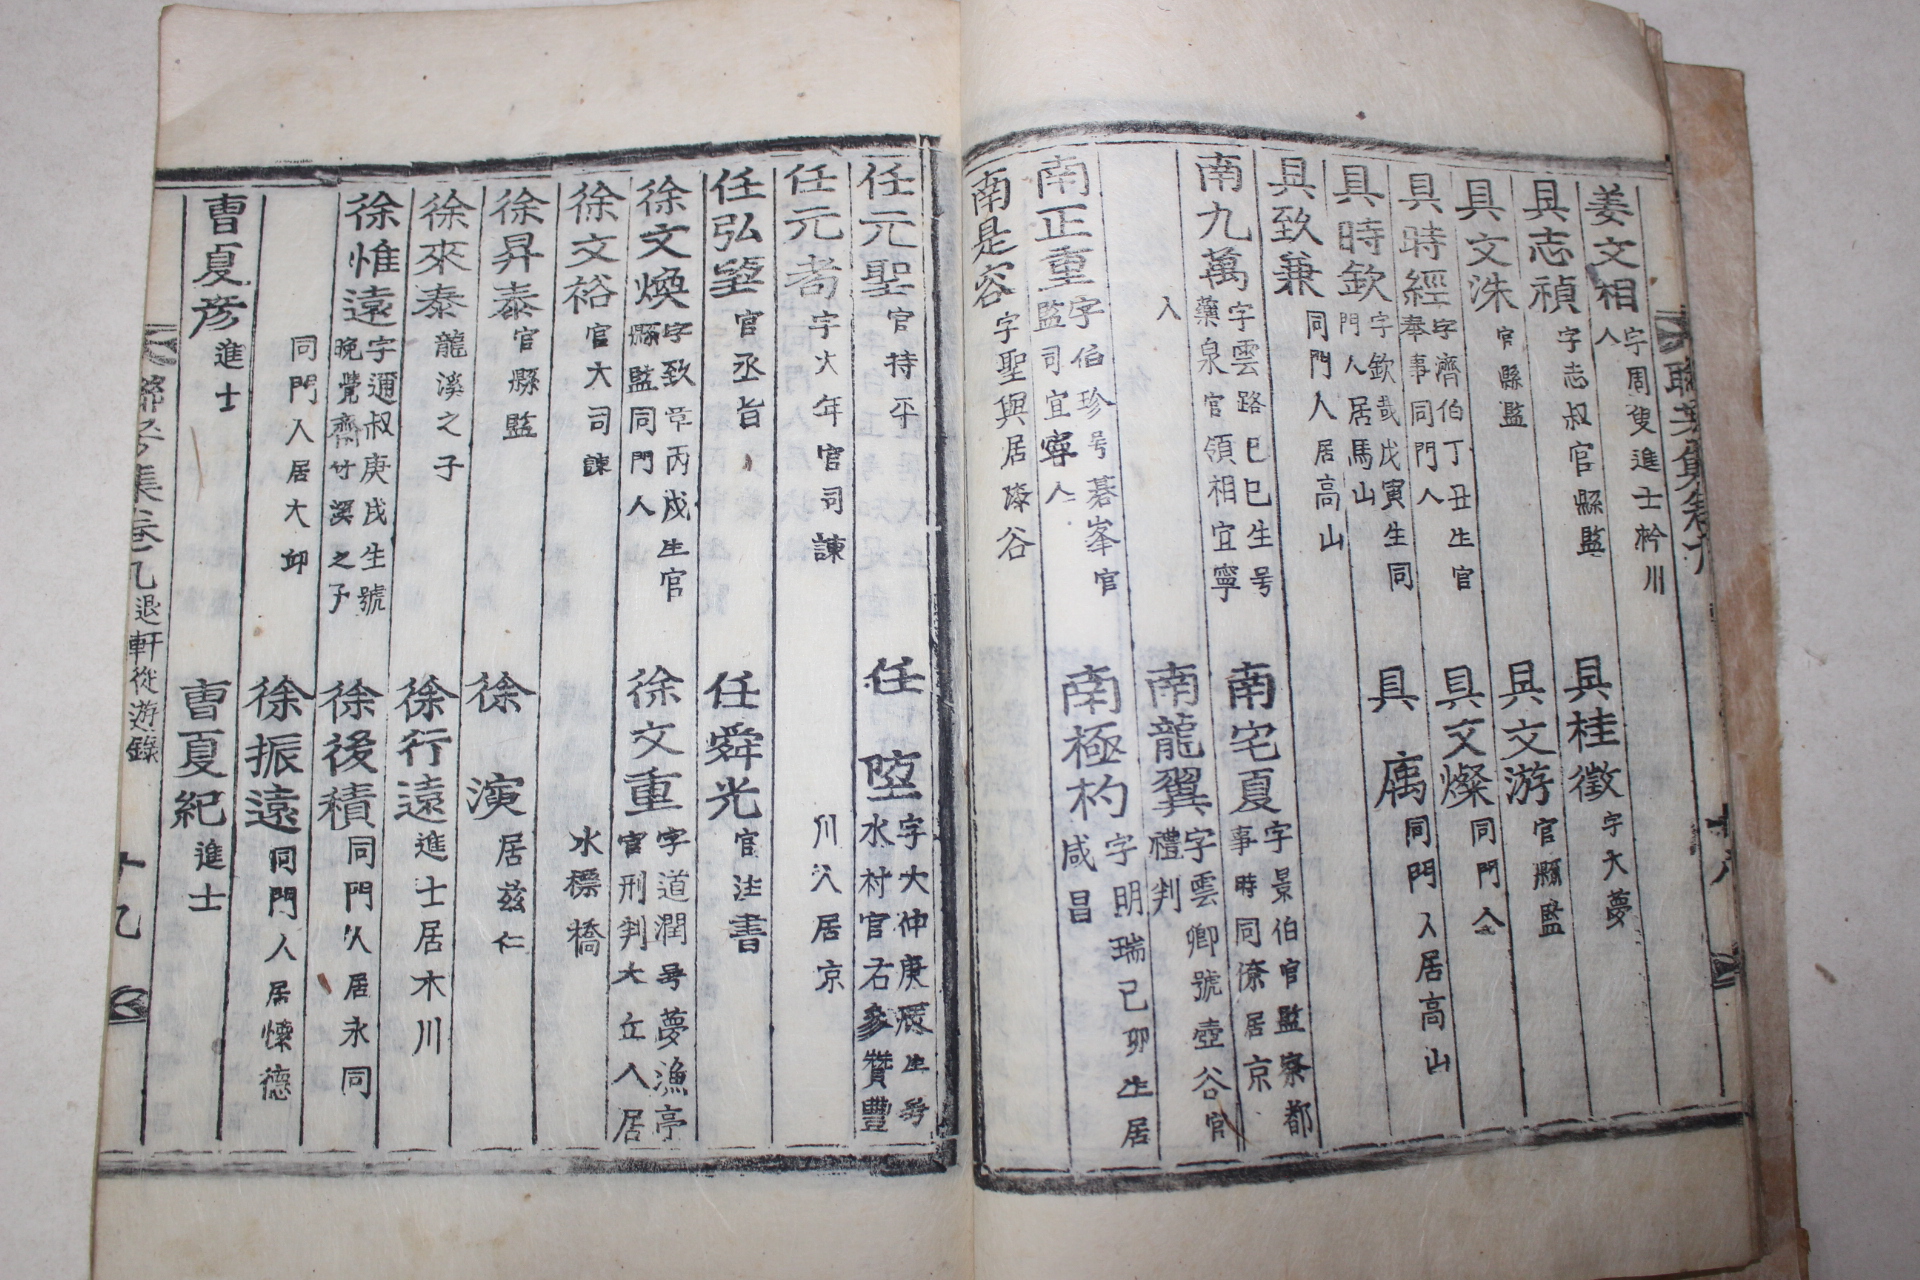 姜文相 字周叟進士衿川人
具桂徵 字大夢
具志禎 字志叔官縣監
具文游 官縣監
具文洙 官縣監
具文燦 同門人
具時經 字濟伯丁丑生官奉事同門人
具㝢 同門人居高山
具時欽 字欽哉戊寅生同門人居馬山
具致兼 同門人居高山
南九萬 字雲路己巳生号藥泉官領相宜寧人
南宅夏 字景伯官監察都事時同僚居京
南龍翼 字雲卿號壺谷官禮判
南正重 字伯珍号碁峯官監司宜寧人
南極杓 字明瑞己卯生居咸昌
南是容 字聖與居漆谷
任元聖 官持平
任堕 字大仲庚辰生号水村官右參贊豐川人居京
任元耆 字大年官司諫
任弘望 官丞旨
任舜光 官注書
徐文煥 字致章丙戌生官縣監同門人
徐文重 字道潤号夢漁亭官刑判大丘人居水標橋
徐文裕 官大司諫
徐昇泰 官縣監
徐演 居玆仁
徐來泰 龍溪之子
徐行遠 進士居木川
徐惟遠 字邇叔庚戌生號晩覺齋竹溪之子
徐後積 同門人居永同
同門人居大邱
徐振遠 同門人居懷德
曺夏彦 進士
曺夏紀 進士
聯芳集卷九 退軒從遊錄 十九